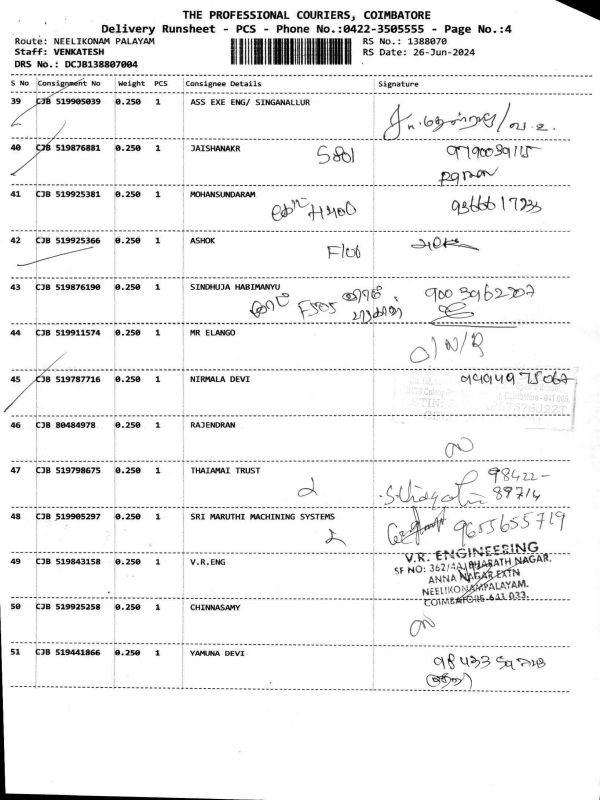 THE PROFESSIONAL COURIERS, COIMBATORE
Delivery Runsheet - PCS - Phone No.:0422-3505555 - Page No.:4
Route: NEELIKONAM PALAYAM RS No.: 1388070
Staff: VENKATESH RS Date: 26-Jun-2024
DRS No.: DCJB138807004
S No Consignment No Weight PCS Consignee Details Signature
39 CJB 519905039 0.250 1 ASS EXE ENG/ SINGANALLUR
40 CJB 519876881 0.250 1 JAISHANAKR S801 9790039115
41 CJB 519925381 0.250 1 MOHANSUNDARAM
42 CJB 519925366 0.250 1 ASHOK
43 CJB 519876190 0.250 1 SINDHUJA HABIMANYU F505 900 3962207
44 CJB 519911574 0.250 1 MR ELANGO
45 CJB 519787716 0.250 1 NIRMALA DEVI
46 CJB 80484978 0.250 1 RAJENDRAN
47 CJB 519798675 0.250 1 THAIAMAI TRUST 98422-
89714
48 CJB 519905297 0.250 1 SRI MARUTHI MACHINING SYSTEMS 9655655719
49 CJB 519843158 0.250 1 V.R.ENG V.R. ENGINEERING
SF NO: 362/4A, BHARATH NAGAR,
ANNA NAGAR EXTN
NEELIKONAMPALAYAM,
COIMBATORE-641 033.
50 CJB 519925258 0.250 1 CHINNASAMY
51 CJB 519441866 0.250 1 YAMUNA DEVI